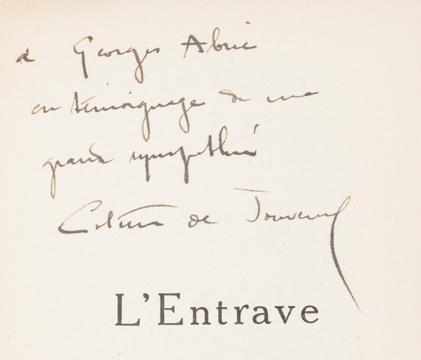 à Georges Abric
en témoignage de ma
grande sympathie
Colette de Jouvenel
L'Entrave